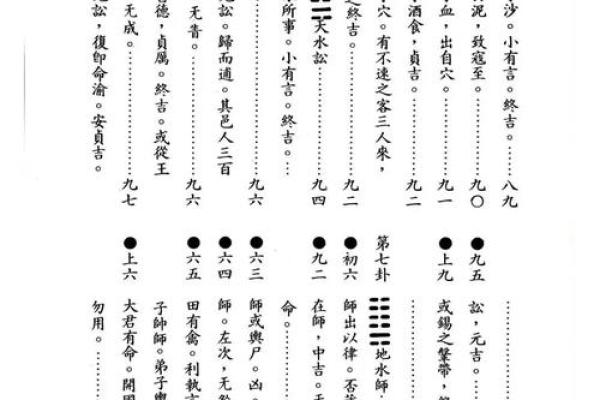 沙。小有言。終吉。……八九
泥,致寇至。……九〇
血,出自穴。……九一
酒食,貞吉。……九二
穴。有不速之客三人來,
之終吉。……九二
天水訟……九四
所事。小有言。終吉。…
……九六
訟。歸而逋。其邑人三百
无眚。……九六
德,貞厲。終吉。或從王
无成。……九七
訟,復卽命渝。安貞吉。
……
●九五 訟,元吉。……
●上九 或錫之鞶帶,
第七卦 ䷆地水師
●初六 師出以律。否
●九二 在師,中吉。
命。……
●六三 師或輿尸。凶。
●六四 師。左次,无
●六五 田有禽。利執
子帥師。弟子輿
●上六 大君有命。開
勿用。……